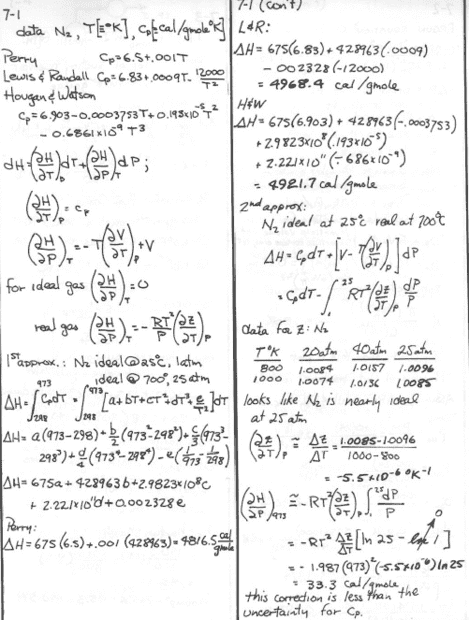 7-1
data N₂, T[≡°K], Cp[≡cal/gmole°K]
Perry Cp=6.5+.001T
Lewis & Randall Cp=6.83+.0009T- 12000/T²
Hougan & Watson
Cp=6.903-0.0003753T+0.193x10⁻⁵T²
-0.6861x10⁻⁹ T³
dH=(∂H/∂T)p dT+(∂H/∂P)T dP;
(∂H/∂T)p = cp
(∂H/∂P)T = -T(∂V/∂T)p+V
for ideal gas (∂H/∂P)T=0
real gas (∂H/∂P)T=-RT²/P (∂z/∂T)p
1st approx.: N₂ ideal@25°C, 1atm
ideal @ 700°, 25atm
ΔH=∫₂₉₈⁹⁷³CpdT=∫₂₉₈⁹⁷³[a+bT+cT²+dT³+e/T²]dT
ΔH=a(973-298)+b/2(973²-298²)+c/3(973³-
298³)+d/4(973⁴-298⁴)-e(1/973-1/298)
ΔH=675a+428963b+2.9823x10⁸c
+2.221x10¹¹d+0.002328e
Perry:
ΔH=675(6.5)+.001(428963)=4816.5 cal/gmole
7-1 (con't)
L&R:
ΔH=675(6.83)+428963(.0009)
-.002328(-12000)
=4968.4 cal/gmole
H&W
ΔH=675(6.903)+428963(-.0003753)
+2.9823x10⁸(.193x10⁻⁵)
+2.221x10¹¹(-.686x10⁻⁹)
=4921.7 cal/gmole
2nd approx:
N₂ ideal at 25°C real at 700°C
ΔH=CpdT+[V-T(∂V/∂T)p]dP
=CpdT-∫₁²⁵RT²(∂z/∂T)p dP/P
data for Z: N₂
T°K 20atm 40atm 25atm
800 1.0084 1.0157 1.0096
1000 1.0074 1.0136 1.0085
looks like N₂ is nearly ideal
at 25atm
(∂z/∂T)p ≅ Δz/ΔT = 1.0085-1.0096/1000-800
=-5.5x10⁻⁶ °K⁻¹
(∂H/∂P)₉₇₃ ≅-RT²(∂z/∂T)p∫₁²⁵dP/P
=-RT² Δz/ΔT[ln 25 - ln 1] 0
=-1.987(973)²(-5.5x10⁻⁶)ln25
=33.3 cal/gmole
this correction is less than the
uncertainty for Cp.